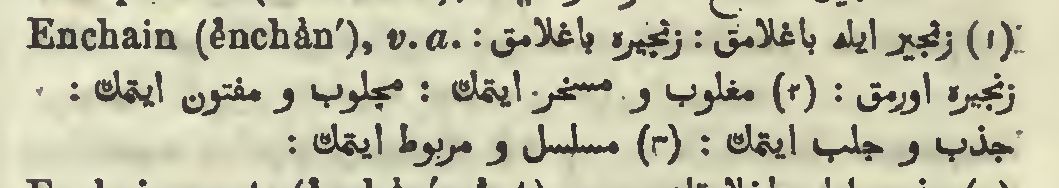 Enchain (ĕnchån′), v. a. : (۱) زنجیر ایله باغلامق : زنجیره باغلامق
زنجیره اورمق : (۲) مغلوب و مسخر ایتمك : مجلوب و مفتون ایتمك :
جذب و جلب ایتمك : (۳) مسلسل و مربوط ایتمك :